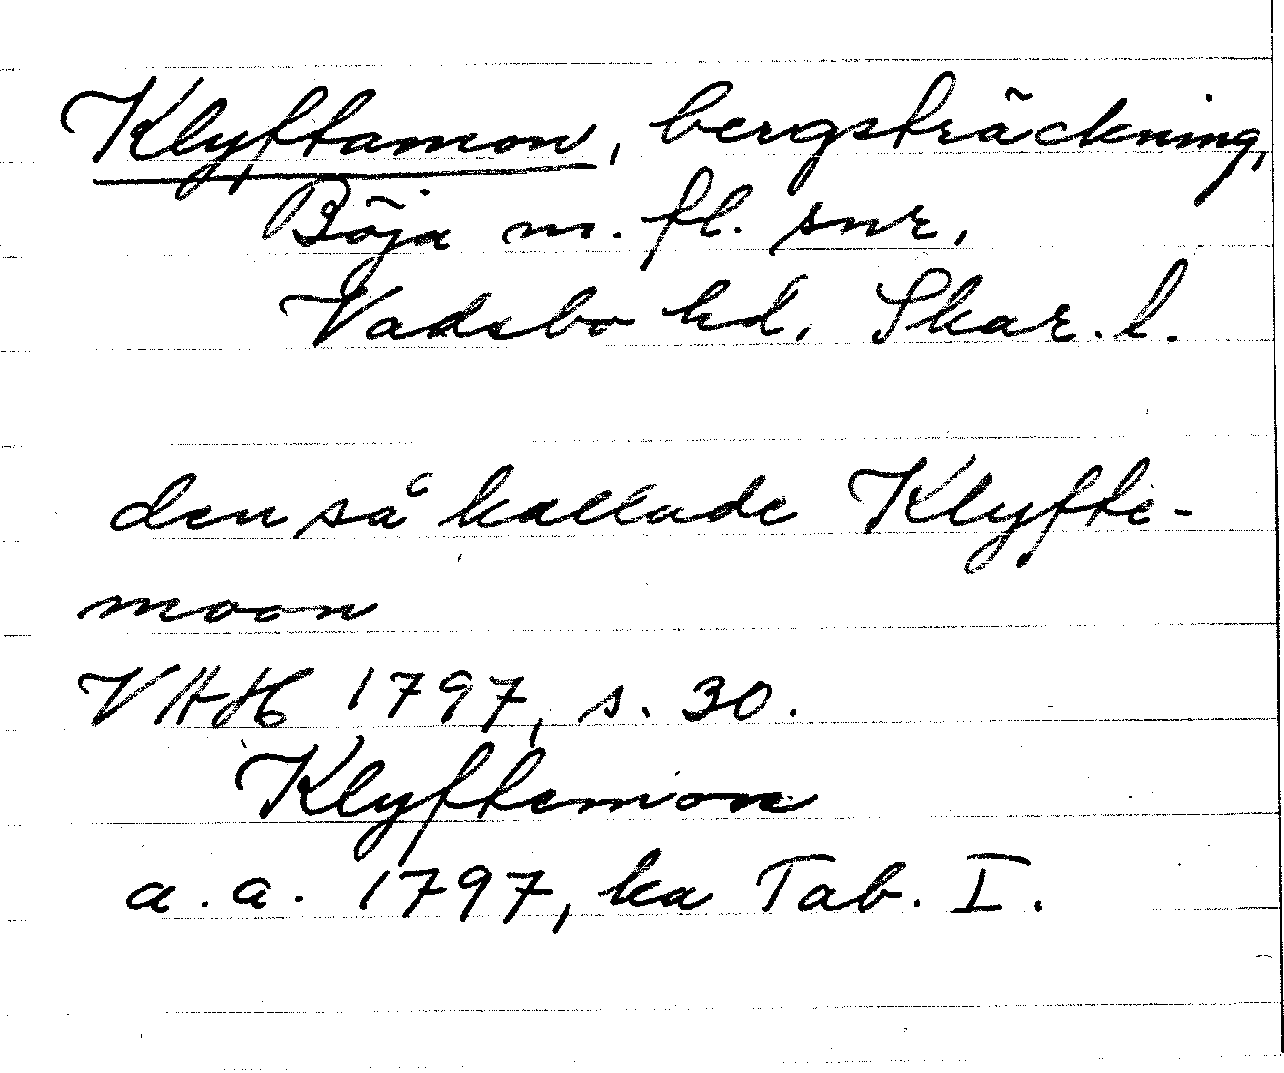 Klyftamon, bergsträckning,
Böja m. fl. snr,
Vadsbo hd, Skar. l.
den så kallade Klyfte-
moon
VHAH 1797, s. 30.
Klyftemon
a. a. 1797, ka Tab. I.